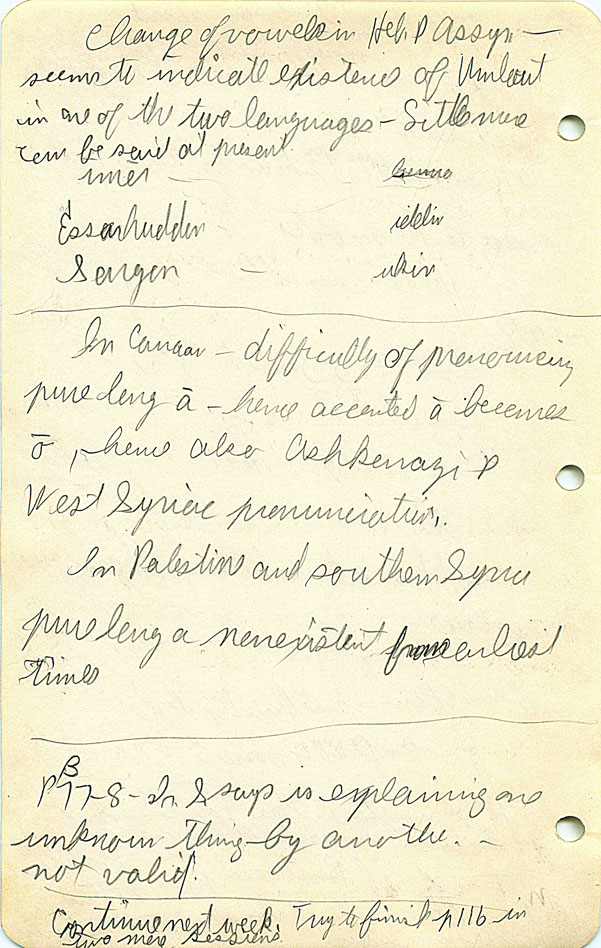 Change of vowels in Heb & Assyr —
seems to indicate existence of Umlaut
in one of the two languages – Little more
can be said at present
imēr –
Essarhuddon – iddin
Sargon – ukin
In Canaan – difficulty of pronouncing
pure long ā – hence accented ā becomes
ō, hence also Ashkenazi &
West Syriac pronunciation.
In Palestine and southern Syria
pure long a nonexistent from earliest
times
P 77-8 – Dr S says is explaining one
unknown thing by another. –
not valid.
Continue next week. Try to finish p 116 in
two more sessions.